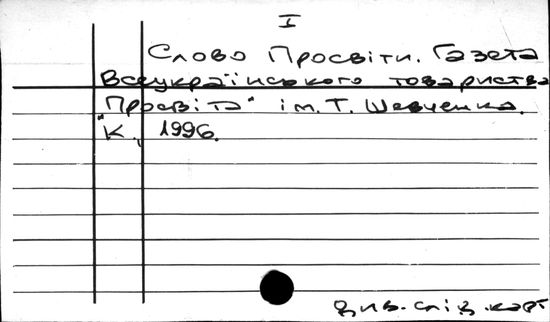 I
Слово Просвіти. Газета
Всеукраїнського товариства
"Просвіта" ім. Т. Шевченка.
К., 1996.
див. слід. карт